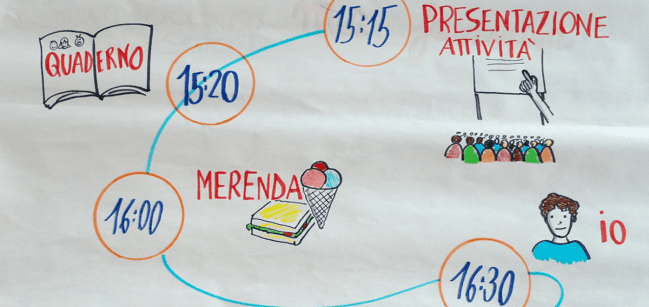 15:15
PRESENTAZIONE
ATTIVITÀ
QUADERNO
15:20
MERENDA
16:00
io
16:30